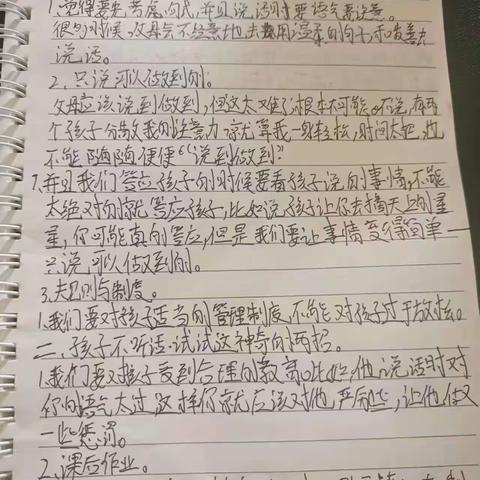 1.觉得要先考虑句式,并且说话时要语气要注意。
很多时候,父母会不经意地去用温柔的句子和善去
说话。
2.只说可以做到的。
父母应该说到做到,但这太难了根本不可能。不说,有两
个孩子分散我的注意力,就算我一身轻松,时间太把,也
不能随随便便“说到做到”
并且我们答应孩子的时候要看孩子说的事情,不能
太绝对的就答应孩子,比如说孩子让你去摘天上的星
星,你可能真的答应,但是我们要让事情变得简单一
只说可以做到的。
3.规则与制度。
1.我们要对孩子适当的管理制度,不能对孩子过于放松。
二、孩子不听话,试试这神奇的两招。
1.我们要对孩子受到合理的教育。比如,他说话时对
你的语气太过,这样你就应该对他严厉些,让他做
一些惩罚。
2.课后作业。